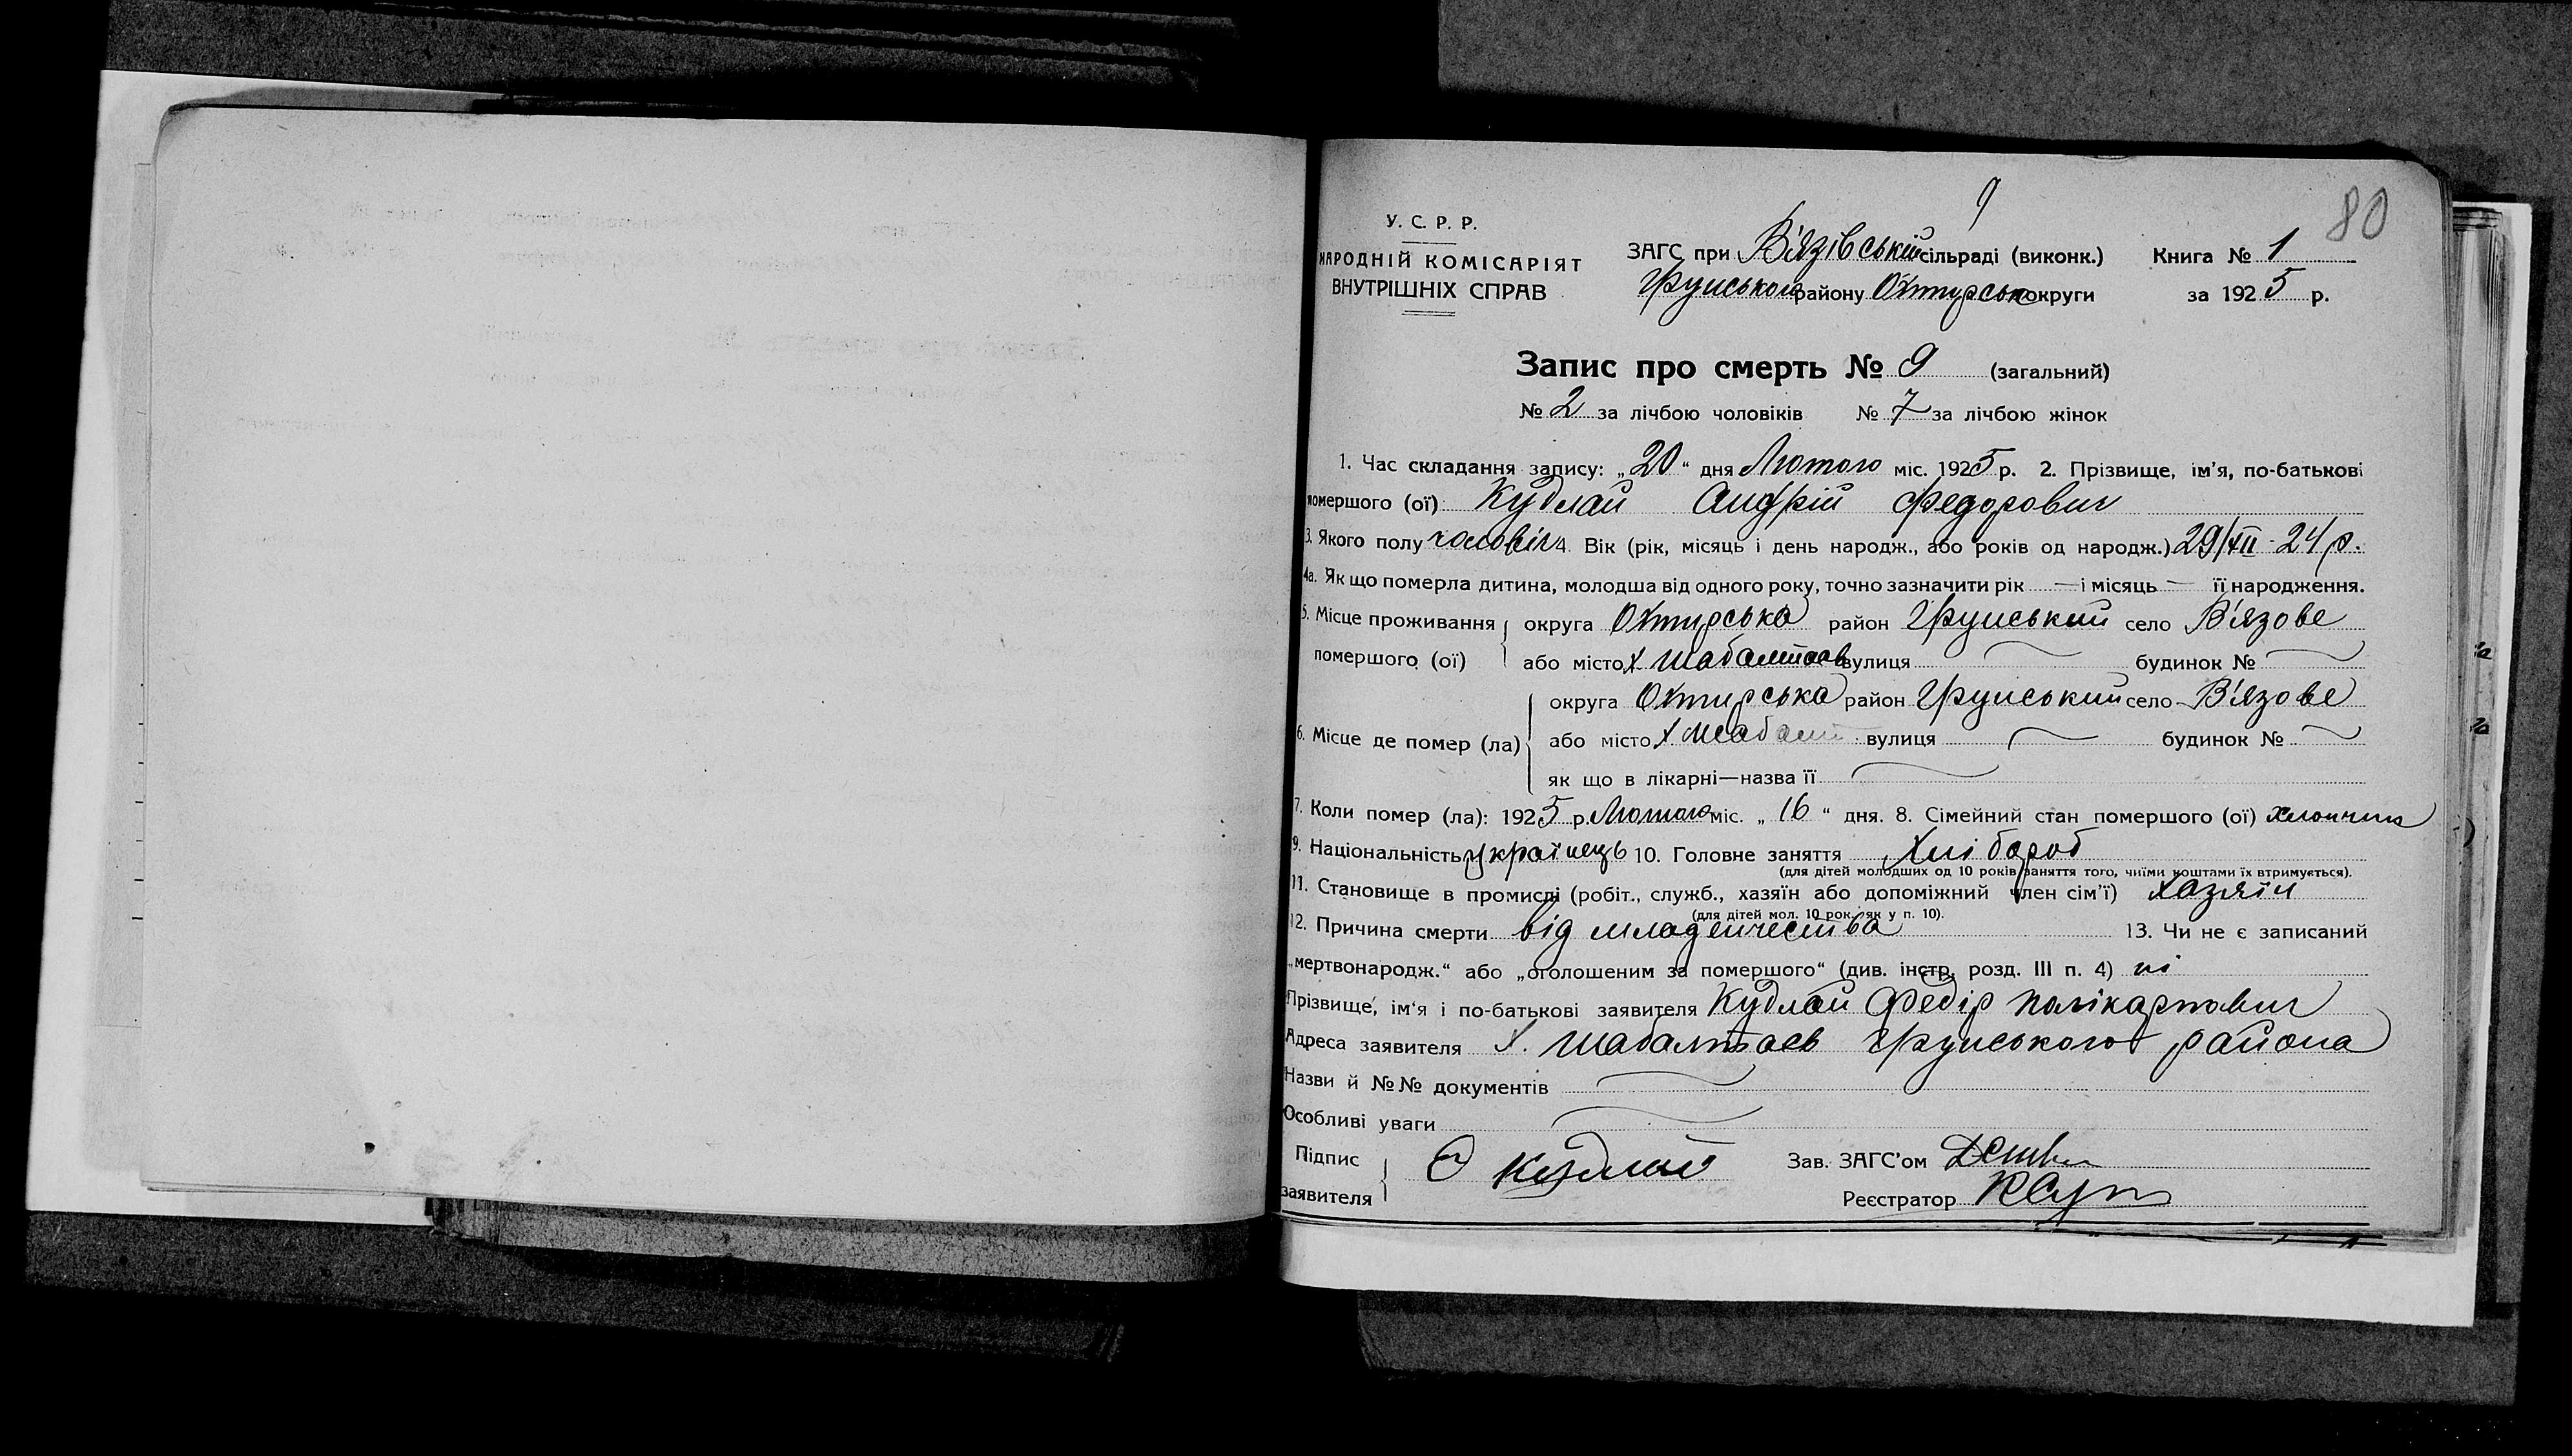 9
80
У. С. Р. Р.
НАРОДНІЙ КОМІСАРІЯТ
ВНУТРІШНІХ СПРАВ
ЗАГС при В'язівській сільраді (виконк.) Книга № 1
Грунського району Охтирськ округи за 1925 р.
Запис про смерть № 9 (загальний)
№ 2 за лічбою чоловіків № 7 за лічбою жінок
1. Час складання запису: „20“ дня Лютого міс. 1925 р. 2. Прізвище, ім'я, по-батькові
помершого (ої) Кудлай Андрій Федорович
3. Якого полу чоловіч 4. Вік (рік, місяць і день народж., або років од народж.) 29/XII - 24 р.
4а. Як що померла дитина, молодша від одного року, точно зазначити рік — і місяць — її народження.
5. Місце проживання округа Охтирська район Грунський село В'язове
помершого (ої) або місто х Шабалтаєв вулиця — будинок № —
округа Охтирська район Грунський село В'язове
6. Місце де помер (ла) або місто х Шабалт вулиця — будинок № —
як що в лікарні—назва її —
7. Коли помер (ла): 1925 р. Лютого міс. „16“ дня. 8. Сімейний стан помершого (ої) хлопчик
9. Національність українець 10. Головне заняття Хлібороб
(для дітей молодших од 10 років заняття того, чиїми коштами їх втримується).
11. Становище в промислі (робіт., служб., хазяїн або допоміжний член сім'ї) хазяїн
(для дітей мол. 10 рок. як у п. 10).
12. Причина смерти від младенчества 13. Чи не є записаний
„мертвонародж.“ або „оголошеним за помершого“ (див. інстр. розд. III п. 4) ні
Прізвище, ім'я і по-батькові заявителя Кудлай Федір Полікарпович
Адреса заявителя Х. Шабалтаєв Грунського района
Назви й №№ документів —
Особливі уваги —
Підпис
заявителя Ф Кудлай
Зав. ЗАГС'ом
Реєстратор